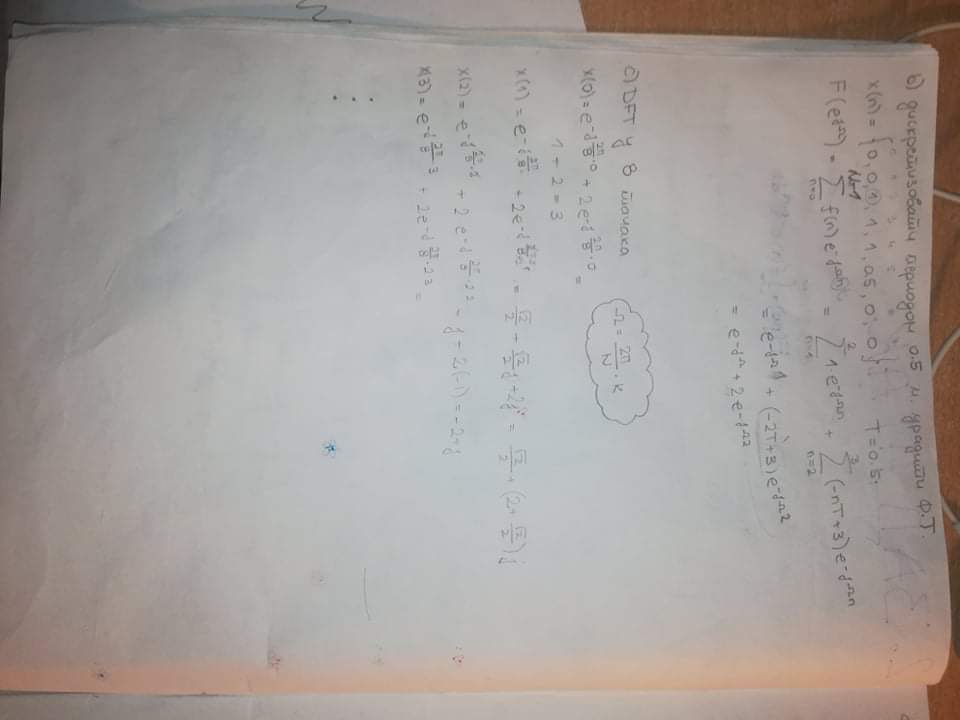 б) дискретизовати периодом 0.5 и урадити Ф.Т.
x(n) = {0, 0, 1, 1, 1, 0.5, 0, 0} T=0.5.
F(e^{jΩ}) = \sum_{n=0}^{N-1} f(n) e^{-jΩn} = \sum_{n=1}^{2} 1 · e^{-jΩn} + \sum_{n=2}^{3} (-nT+3) e^{-jΩn}
= e^{-jΩ1} + (-2T+3) e^{-jΩ2}
= e^{-jΩ} + 2 e^{-jΩ2}
c) DFT у 8 тачака
Ω = \frac{2π}{N} · k
x(0) = e^{-j\frac{2π}{8}·0} + 2e^{-j\frac{2π}{8}·0} =
1 + 2 = 3
x(1) = e^{-j\frac{2π}{8}·} + 2e^{-j} = \frac{√2}{2} + \frac{√2}{2}j + 2j = \frac{√2}{2} + (2+\frac{√2}{2})j
x(2) = e^{-j\frac{2π}{8}·2} + 2e^{-j\frac{2π}{8}·2·2} = -j - 2(-1) = -2+j
x(3) = e^{-j\frac{2π}{8}·3} + 2e^{-j\frac{2π}{8}·2·3} =